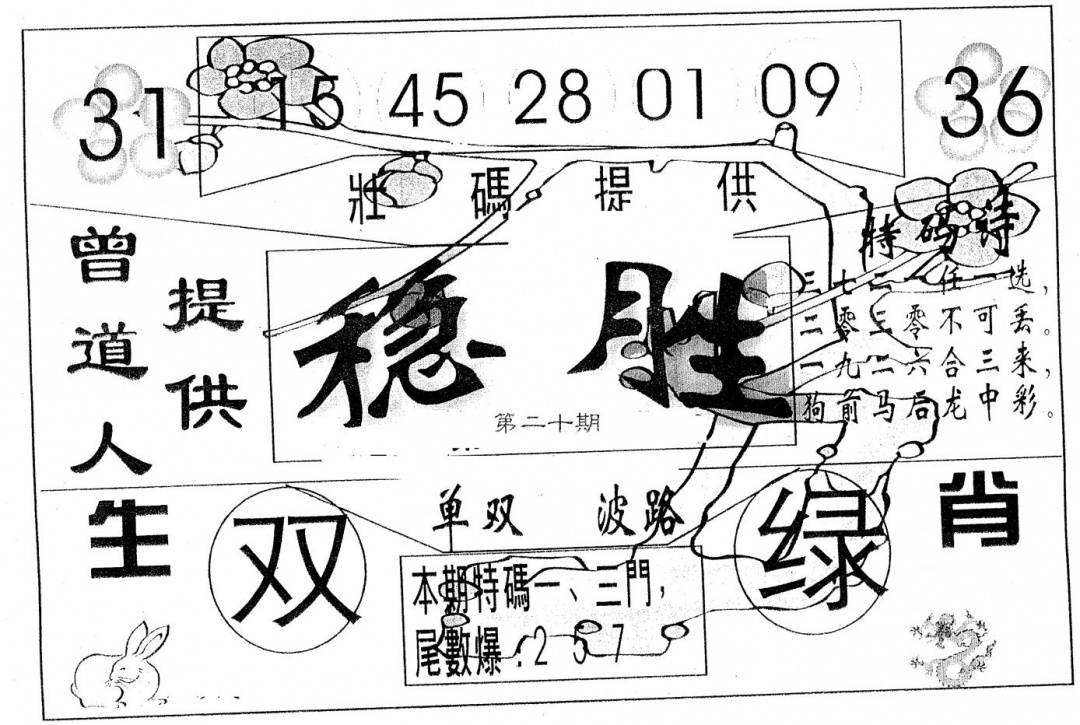 31 15 45 28 01 09 36
壯碼提供
曾道人
提供
特码诗
稳胜
三七二一任一选，
二零三零不可丢。
一九二六合三来，
狗前马后龙中彩。
第二十期
单双 波路
生肖
双
绿
本期特碼一、三門，
尾數爆:2 5 7